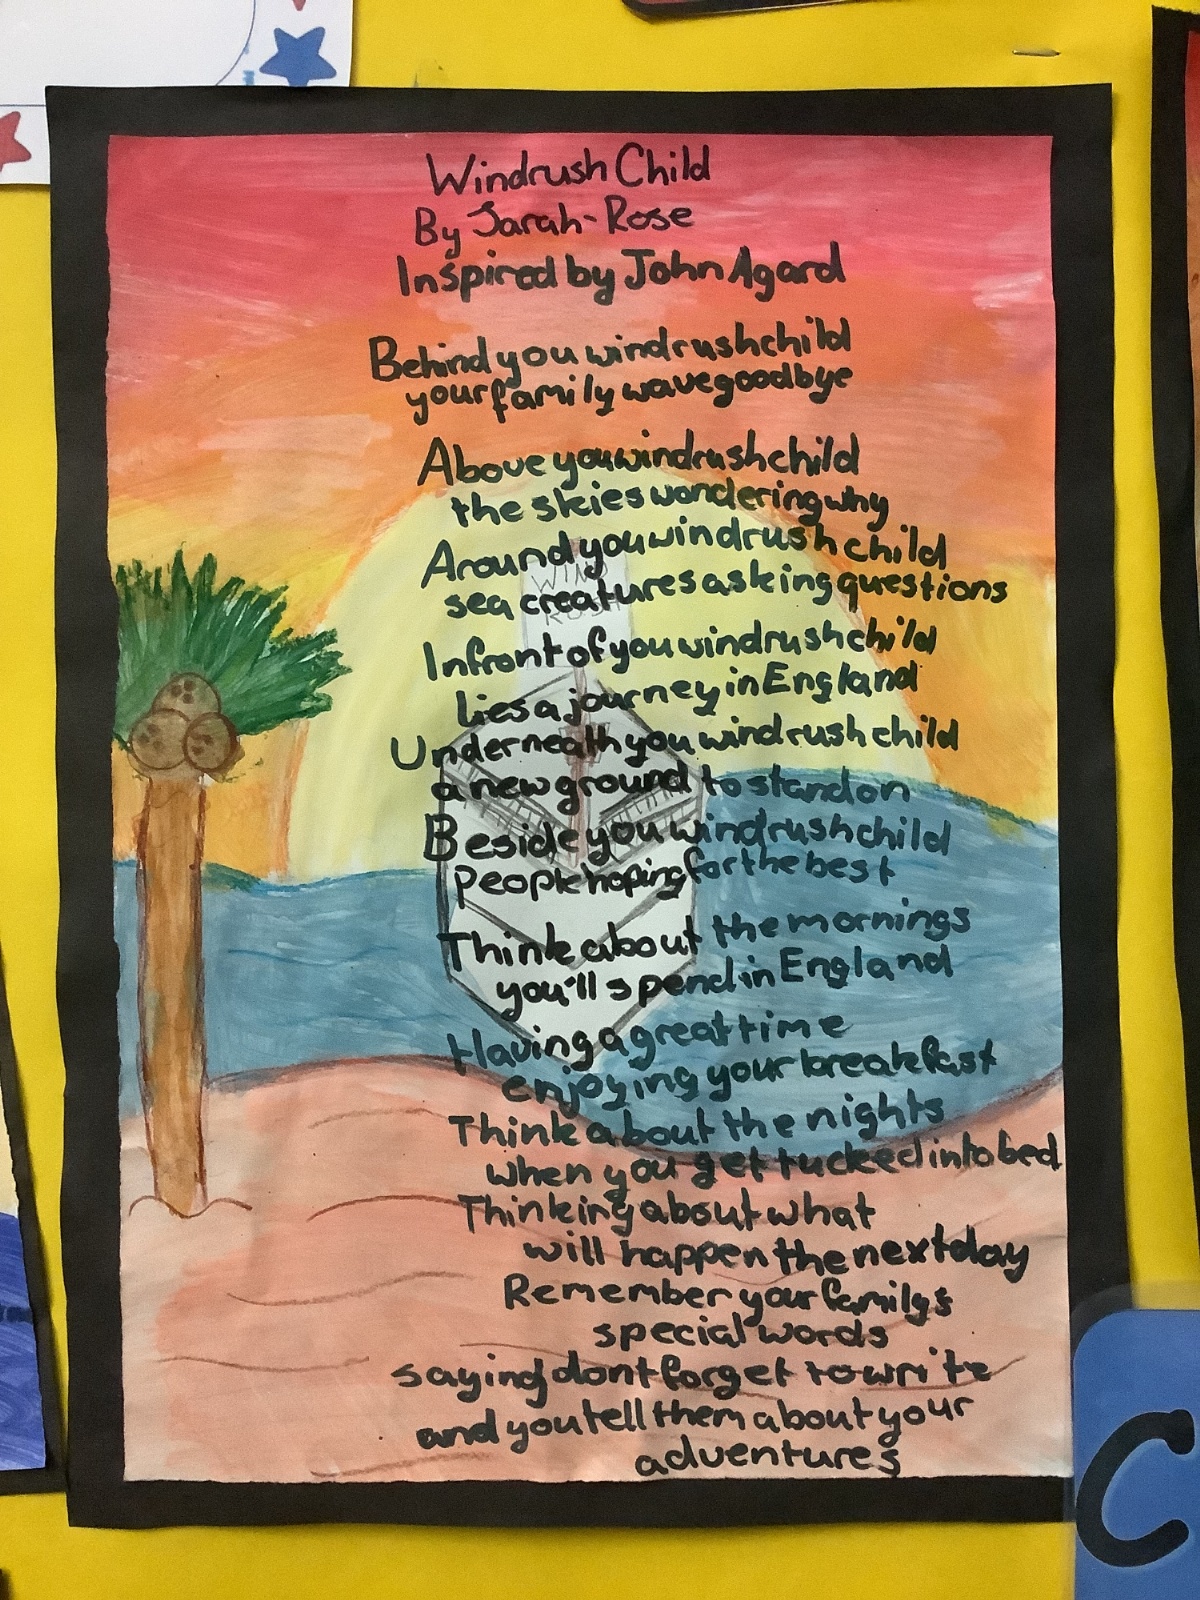 Windrush Child
By Sarah-Rose
Inspired by John Agard
Behind you windrush child
your family wave goodbye
Above you windrush child
the skies wondering why
Around you windrush child
sea creatures asking questions
WIND
RUSH
Infront of you windrush child
lies a journey in England
Underneath you windrush child
a new ground to stand on
Beside you windrush child
People hoping for the best
Think about the mornings
you'll spend in England
Having a great time
enjoying your breakfast
Think about the nights
when you get tucked into bed
Thinking about what
will happen the next day
Remember your family's
special words
saying dont forget to write
and you tell them about your
adventures
C